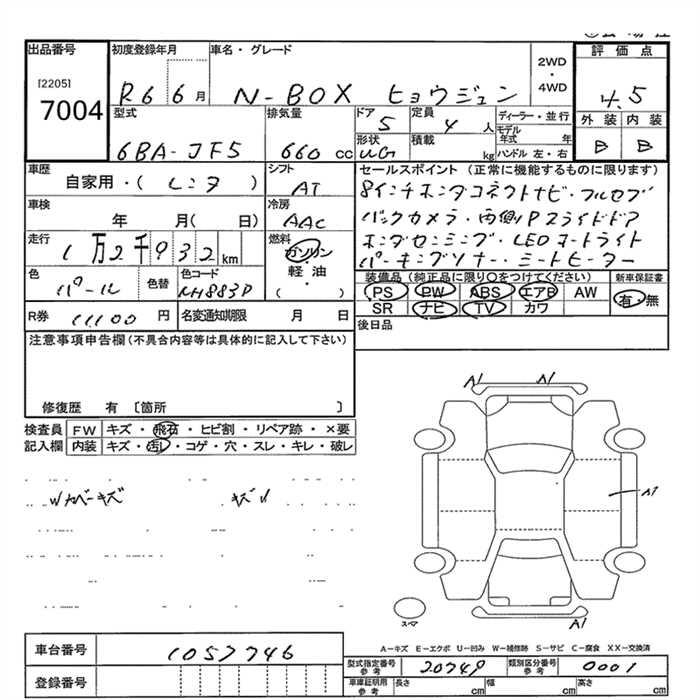 出品番号
[2205]
7004
初度登録年月
R6 6月
車名・グレード
N-BOX ヒョウジュン
2WD
・
4WD
評価点
4.5
外装 内装
B B
型式
6BA-JF5
排気量
660 cc
ドア
5
定員
4 人
形状
UG
積載
kg
ディーラー・並行
モデル年式 年
ハンドル 左・右
車歴
自家用・( レンタ )
シフト
AT
車検
年 月( 日)
冷房
AAC
走行
1万2千932km
燃料
ガソリン
・
軽・油
( )
色
パール
色替
色コード
NH883P
R券
11100 円
名変通知期限 月 日
セールスポイント (正常に機能するものに限ります)
8インチホンダコネクトナビ・フルセグ
バックカメラ・両側Pスライドドア
ホンダセンシング・LEDヘッドライト
パーキングソナー・シートヒーター
装備品(純正品に限り○をつけてください)
PS PW ABS エアB AW
SR ナビ TV カワ
新車保証書
有・無
後日品
注意事項申告欄(不具合内容等は具体的に記入して下さい)
修復歴 有 〔箇所 〕
検査員 FW キズ・飛石・ヒビ割・リペア跡・×要
記入欄 内装 キズ・汚レ・コゲ・穴・スレ・キレ・破レ
カバーキズ キズ
A1 A1
A1
A1
スマ
A-キズ E-エクボ U-凹み W-補修跡 S-サビ C-腐食 XX-交換済
車台番号 1057746
登録番号
型式指定番号 参考 20749
類別区分番号 参考 0001
車庫証明用 参考 長さ cm 幅 cm 高さ cm